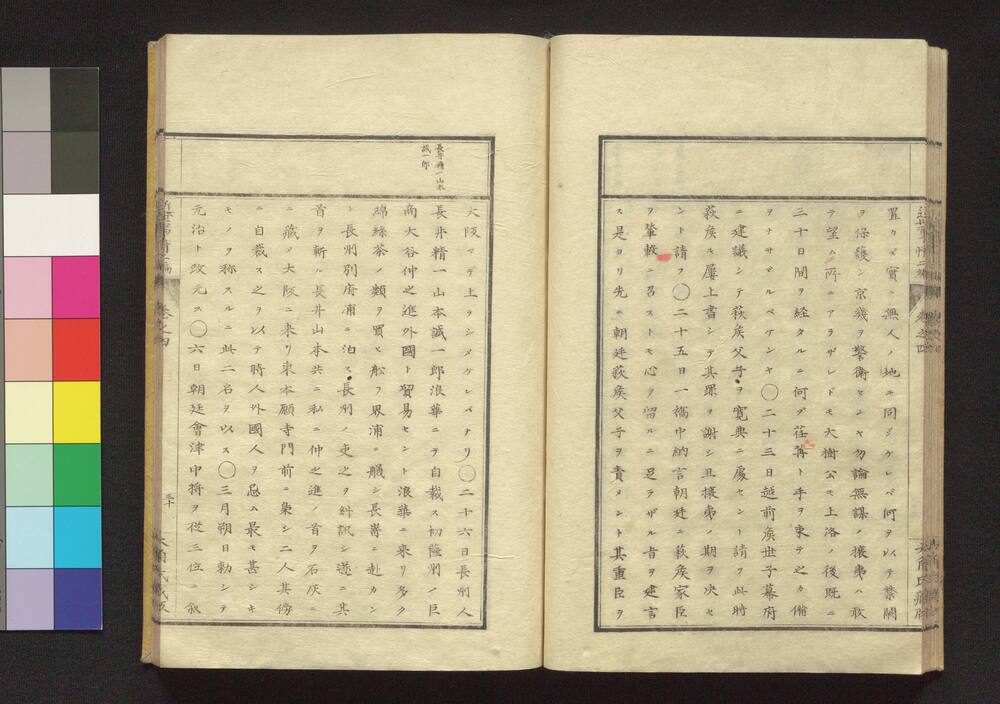 置カズ實ニ無人ノ地ニ同ジケレバ何ヲ以テ禁闕
ヲ保護シ京畿ヲ警衛センヤ勿論無謀ノ攘夷ハ敢
テ望ム所ニアラザレドモ大樹公モ上洛ノ後既ニ
三十日間ヲ経タルニ何ゾ荏苒ト手ヲ束テ之カ備
ヲナサヾルベケンヤ〇二十三日越前矦世子幕府
ニ建議シテ萩矦父子ヲ寛典ニ處セント請フ此時
萩矦モ屢上書シテ其罪ヲ謝シ且攘夷ノ期ヲ決セ
ント請フ〇二十五日一橋中納言朝廷ニ萩矦家臣
ヲ輦轂ニ召ストモ心ヲ留ルニ足ラザル旨ヲ建言
ス是ヨリ先ニ朝廷萩矦父子ヲ責メント其重臣ヲ
長井精一山本
誠一郎
大阪マデ上ラシメケレバナリ〇二十六日長刕人
長井精一山本誠一郎浪華ニテ自裁ス初薩刕ノ巨
商大谷仲之進外國ト貿易セント浪華ニ来リ多ク
綿絲茶ノ類ヲ買ヒ舩ヲ界浦ニ艤シ長嵜ニ赴カン
ト長刕別府浦ニ泊ス長刕ノ吏之ヲ糾訊シ遂ニ其
首ヲ斬ル長井山本共ニ私ニ仲之進ノ首ヲ石灰ニ
ニ藏メ大阪ニ来リ東本願寺門前ニ梟シ二人其傍
ニ自裁ス之ヲ以テ時人外國人ヲ忌ム最モ甚シキ
モノヲ称スルニ此二名ヲ以ス〇三月朔日勅シテ
元治ト改元ス〇六日朝廷會津中将ヲ従三位ニ叙
巻之四
三十